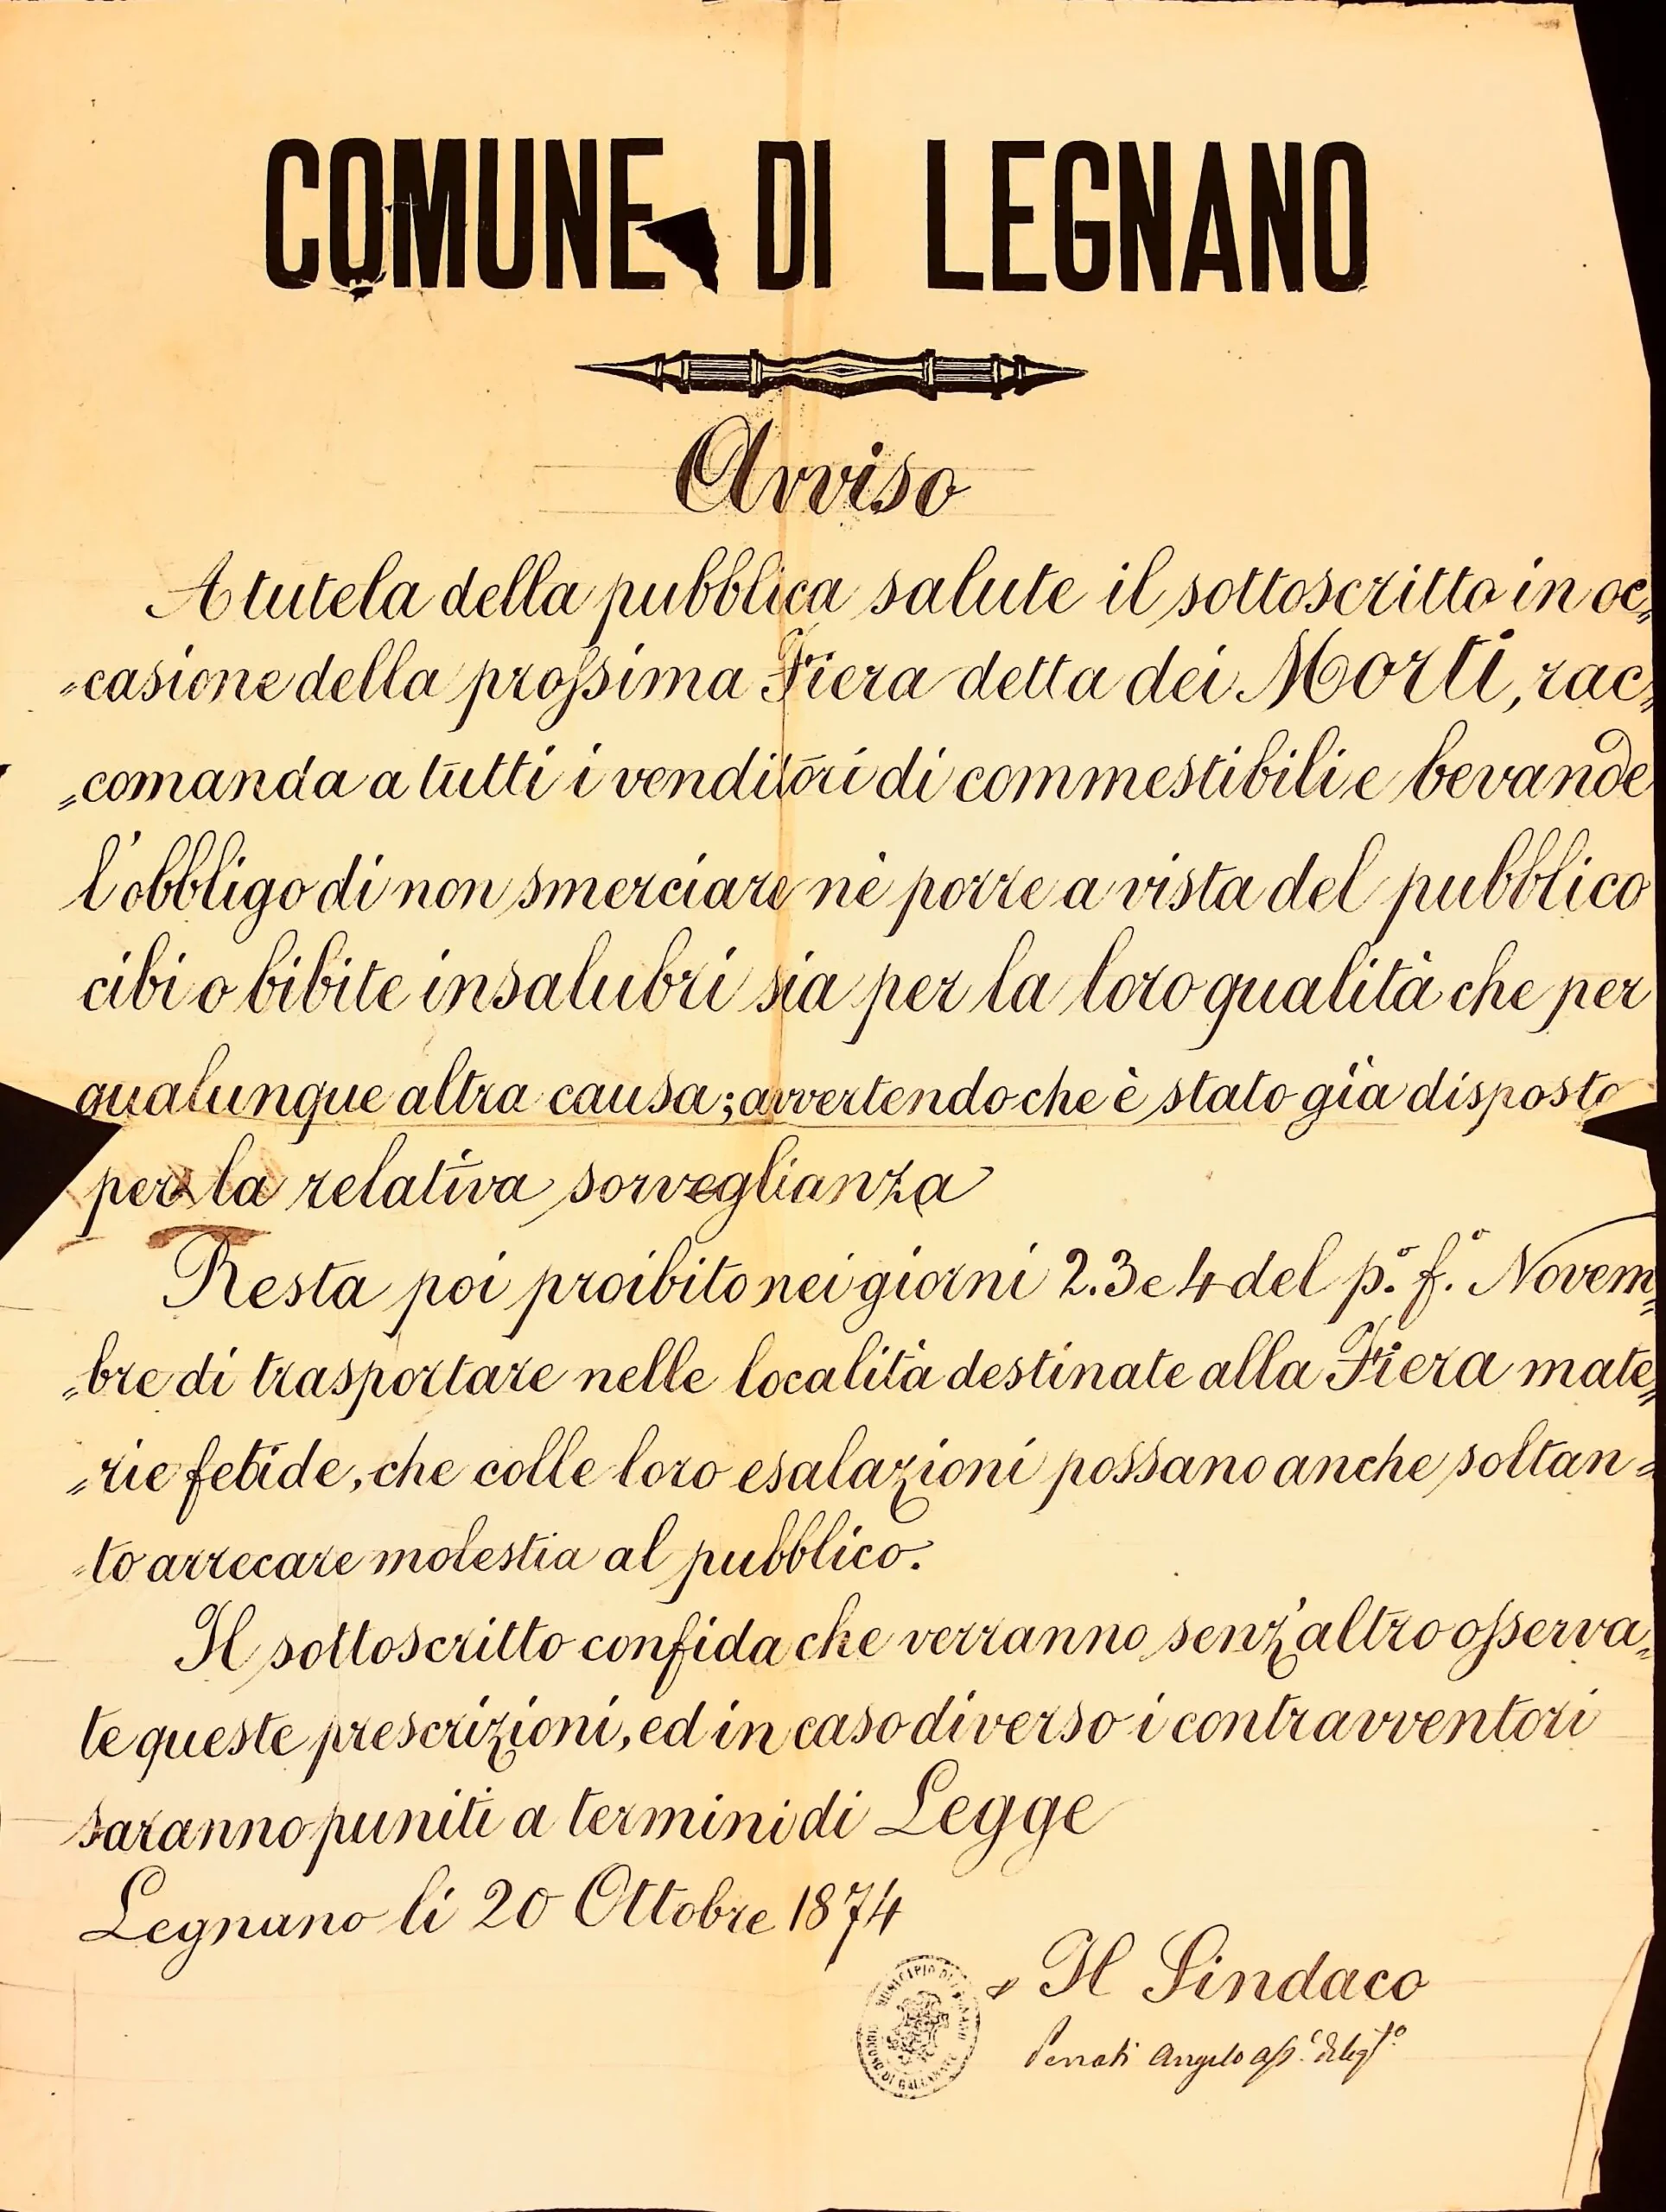 COMUNE DI LEGNANO
Avviso
A tutela della pubblica salute il sottoscritto in oc„
„casione della prossima Fiera detta dei Morti, rac„
„comanda a tutti i venditori di commestibili e bevande
l'obbligo di non smerciare nè porre a vista del pubblico
cibi o bibite insalubri sia per la loro qualità che per
qualunque altra causa; avvertendo che è stato già disposto
per la relativa sorveglianza
Resta poi proibito nei giorni 2.3 e 4 del p.º f.º Novem„
„bre di trasportare nelle località destinate alla Fiera mate„
„rie fetide, che colle loro esalazioni possano anche soltan„
„to arrecare molestia al pubblico.
Il sottoscritto confida che verranno senz'altro osserva„
te queste prescrizioni, ed in caso diverso i contravventori
saranno puniti a termini di Legge
Legnano li 20 Ottobre 1874
MUNICIPIO DI LEGNANO
CIRCOND. DI GALLARATE
Il Sindaco
Penati Angelo ass.e deleg.to